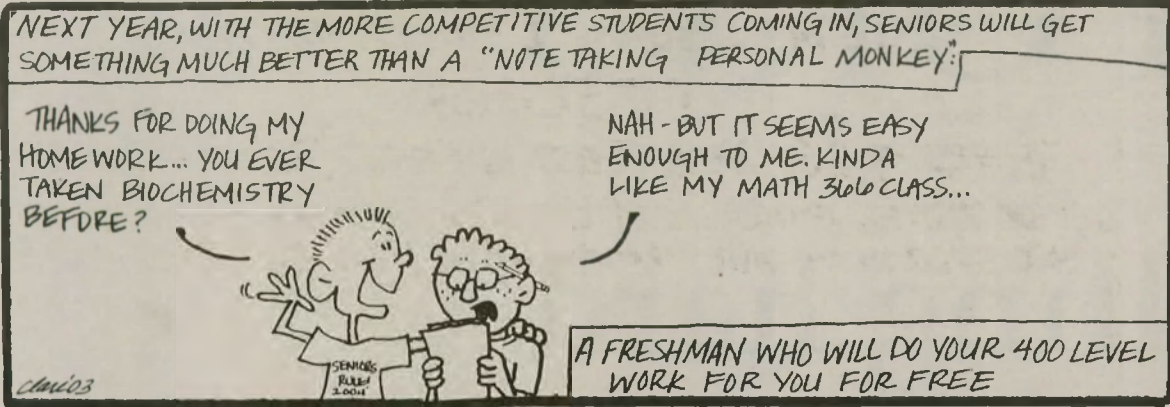 NEXT YEAR, WITH THE MORE COMPETITIVE STUDENTS COMING IN, SENIORS WILL GET
SOMETHING MUCH BETTER THAN A "NOTE TAKING PERSONAL MONKEY":
THANKS FOR DOING MY
HOMEWORK... YOU EVER
TAKEN BIOCHEMISTRY
BEFORE?
NAH - BUT IT SEEMS EASY
ENOUGH TO ME. KINDA
LIKE MY MATH 366 CLASS...
SENIORS
RULE!
2004
A FRESHMAN WHO WILL DO YOUR 400 LEVEL
WORK FOR YOU FOR FREE